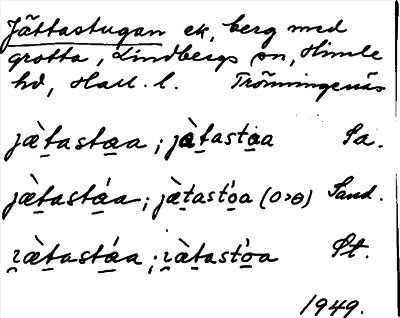 Jättastugan ek, berg med
grotta, Lindbergs sn, Himle
hd, Hall. l. Trönningenäs
jæ̀t̠asta̠a ; jæ̀t̠asto̠a Sa.
jæ̀t̠astá̠a ; jæ̀t̠astó̠a (o>ɵ) Sand.
ɪ̯æ̀t̠astá̠a ; ɪ̯æ̀t̠astó̠a St.
1949.